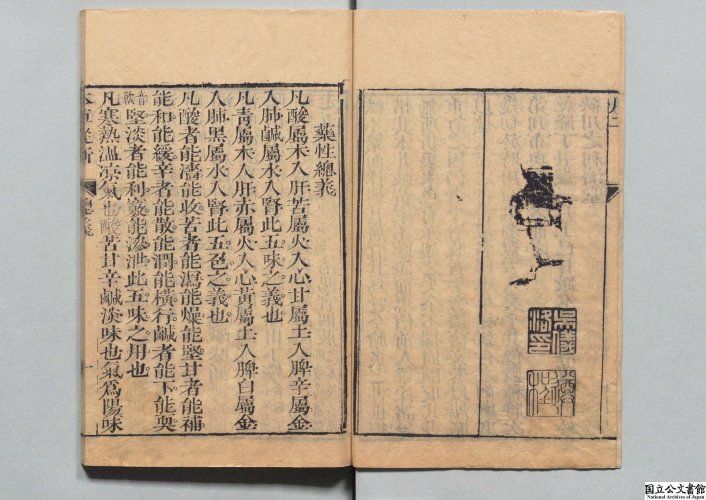 吳儀洛印
藥性總義
凡酸屬木入肝苦屬火入心甘屬土入脾辛屬金
入肺鹹屬水入腎此五味之義也
凡青屬木入肝赤屬火入心黃屬土入脾白屬金
入肺黑屬水入腎此五色之義也
凡酸者能濇能收苦者能瀉能燥能堅甘者能補
能和能緩辛者能散能潤能橫行鹹者能下能耎
音軟堅淡者能利竅能滲泄此五味之用也
凡寒熱溫涼氣也酸苦甘辛鹹淡味也氣爲陽味
本草從新 總義 一
国立公文書館
National Archives of Japan